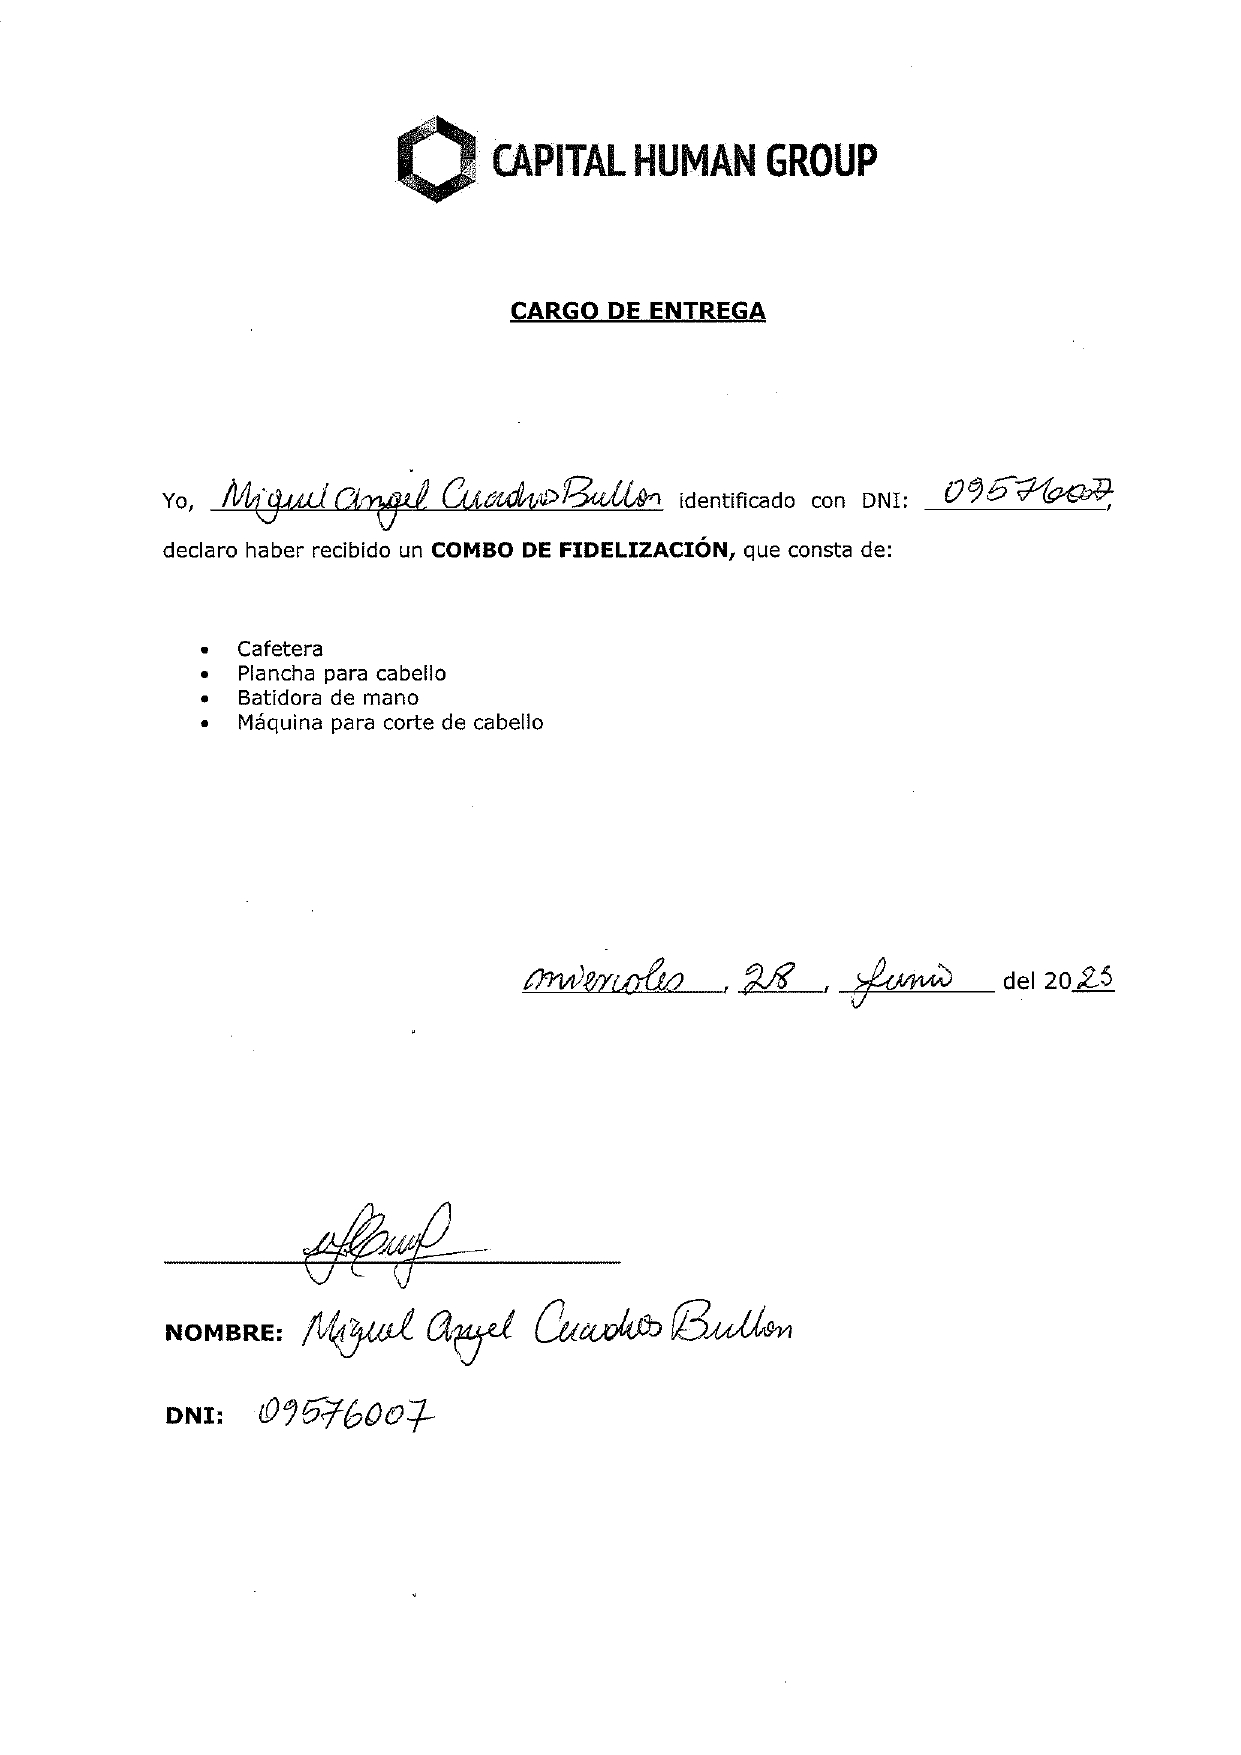 CAPITAL HUMAN GROUP
CARGO DE ENTREGA
Yo, Miguel Angel Cuadros Bullon identificado con DNI: 09576007,
declaro haber recibido un COMBO DE FIDELIZACIÓN, que consta de:
• Cafetera
• Plancha para cabello
• Batidora de mano
• Máquina para corte de cabello
miercoles, 28, Junio del 2023
NOMBRE: Miguel Angel Cuadros Bullon
DNI: 09576007